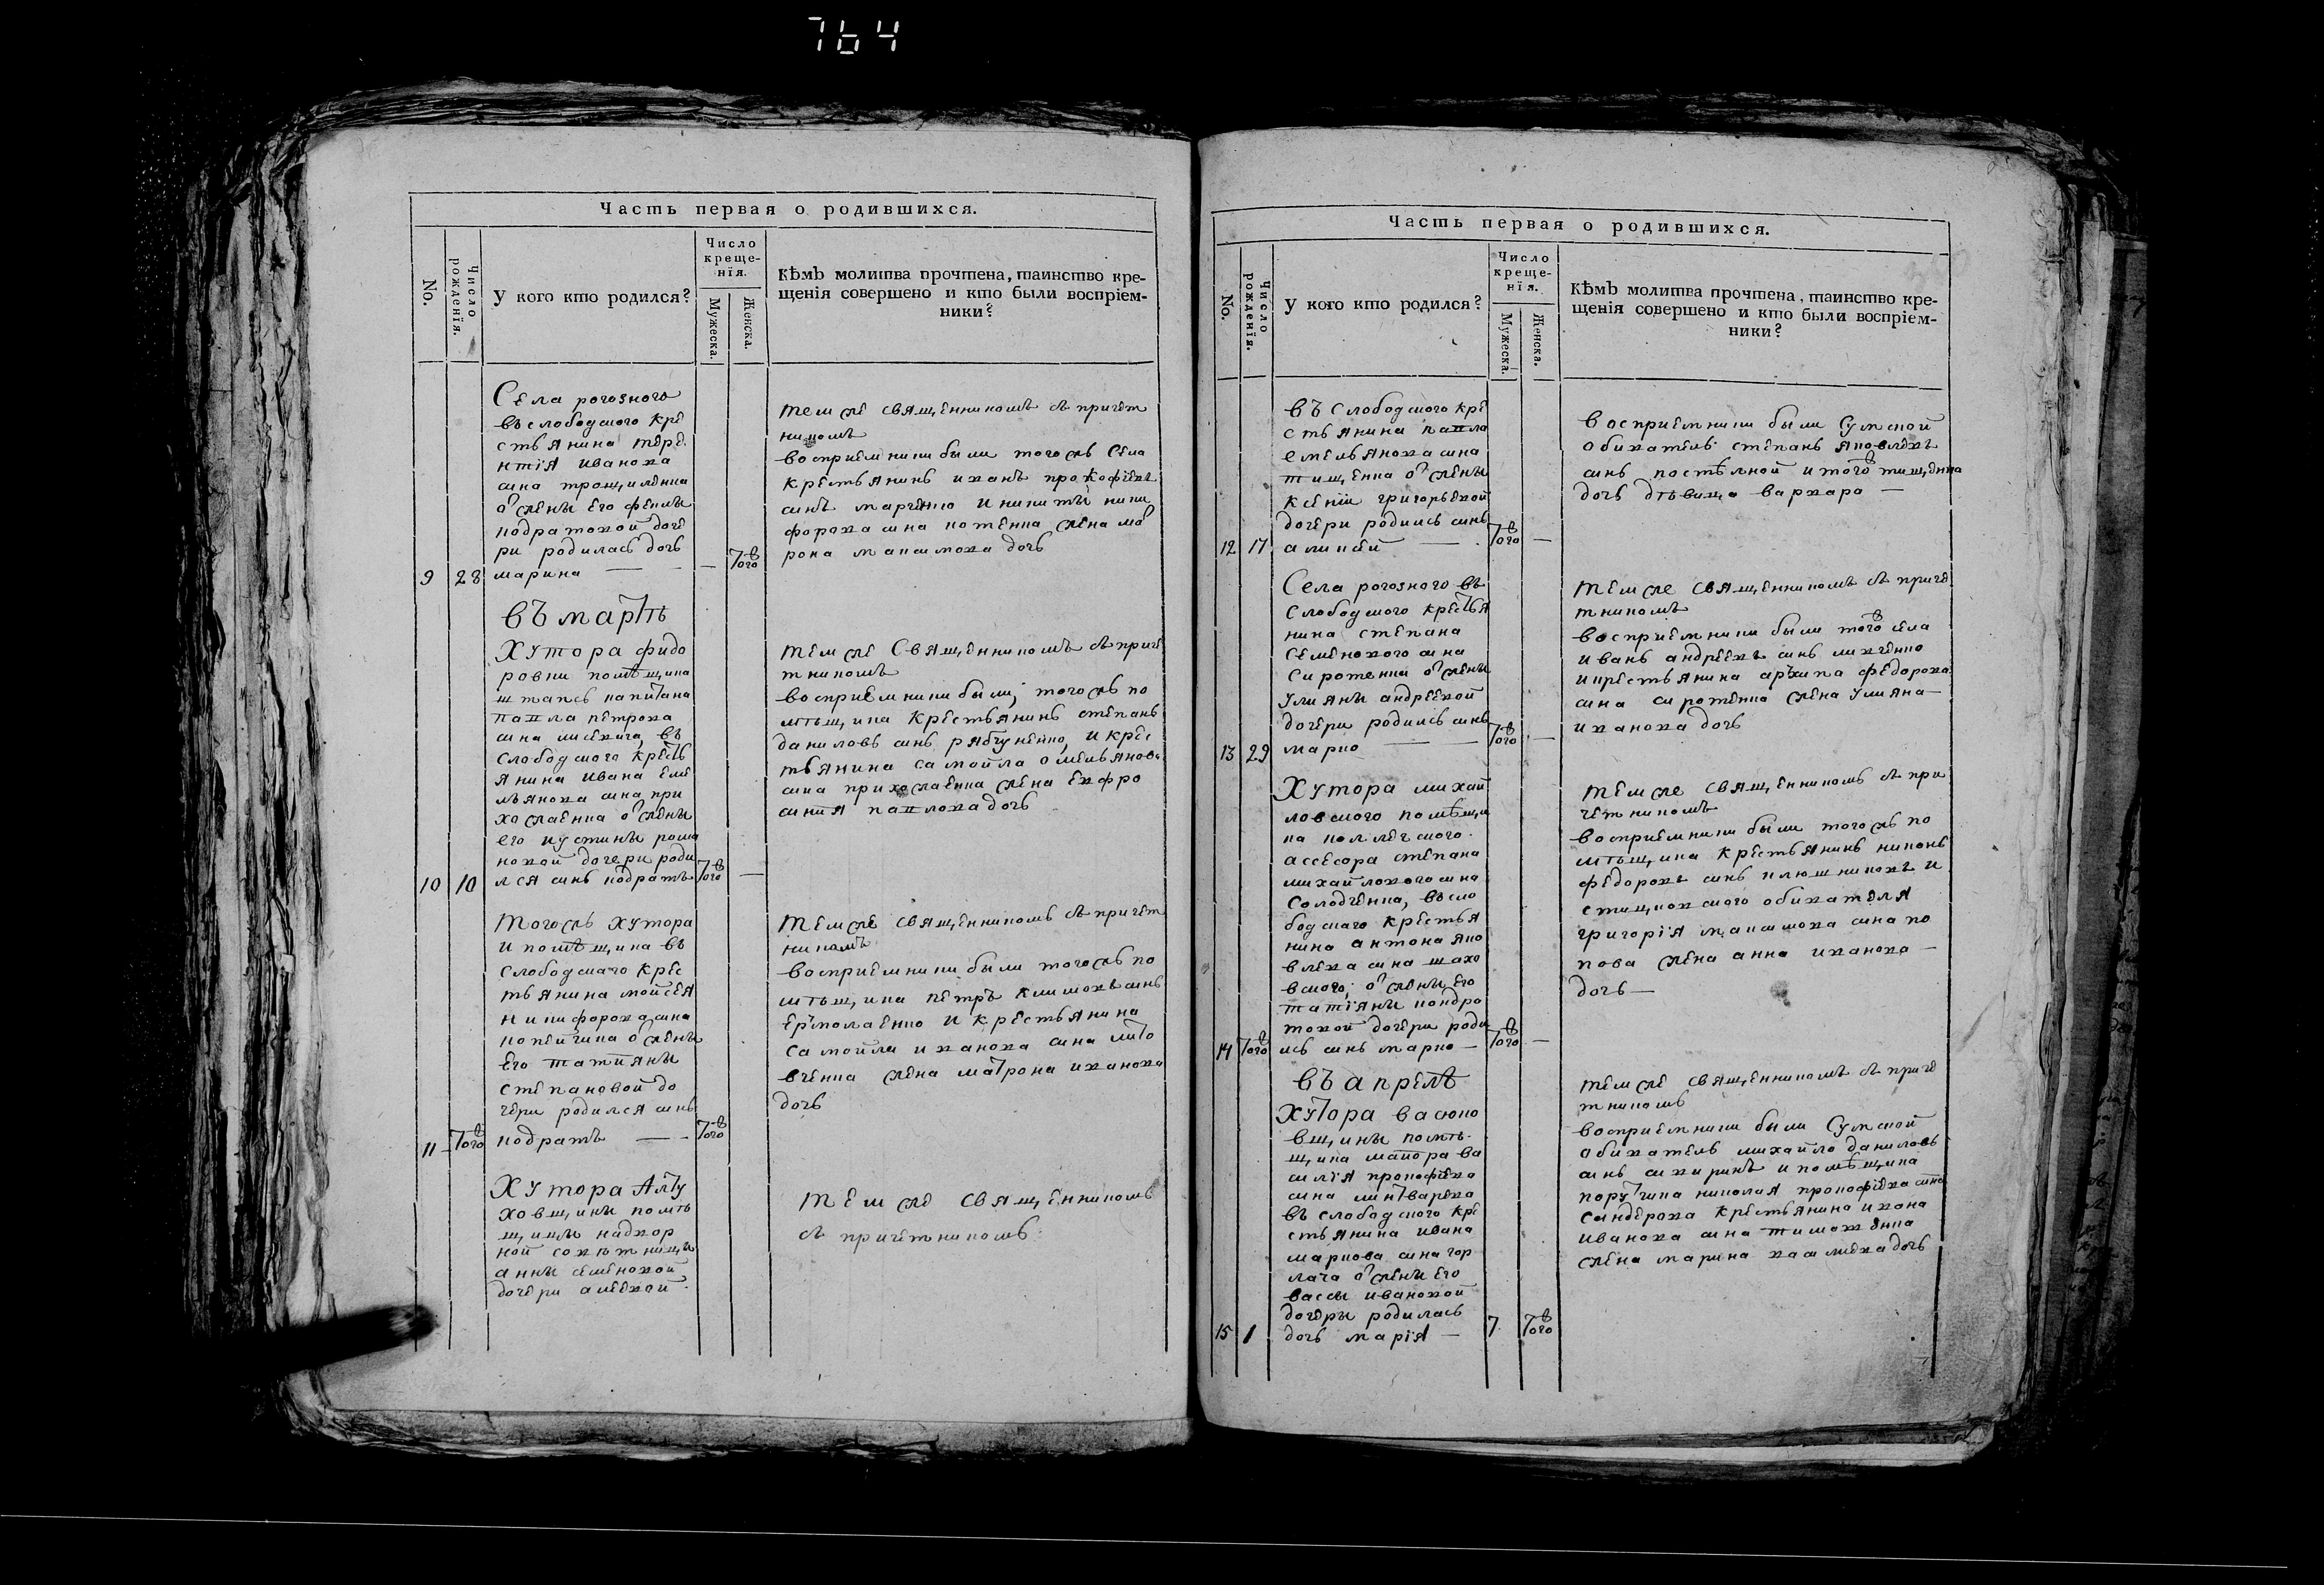 764
Часть первая о родившихся.
No.
Число рожденїя.
У кого кто родился?
Число креще-
нїя.
Мужеска.
Женска.
Кѣмъ молитва прочтена, таинство кре-
щенія совершено и кто были воспріем-
ники?
Села рогозного
въслободского кре
стьянина тере
нтія иванова
сна
его феклы
кодратовой доче
ри родилась дочь
9 28 марина — — 7ого
темже священникомъ съ причет
никомъ
восприемники были тогожъ села
крестьянинъ иванъ прокофіевъ
синъ марченко и никиты ники
форова сина котенка жена мо
рона максимова дочь
въ мартѣ
Хутора фидо
ровки помѣщика
штапсъ капитана
павла петрова
сина лисевича, въ
слободского кресть
янина ивана еме
льянова сина при
ходченка о жены
его иустины рома
новой дочери роди
10 10 лся синъ кодратъ 7ого —
темже священникомъ съ приче
тникомъ
восприемники были, тогожъ по
мѣщика крестьянинъ степанъ
даниловъ синъ рябченко, и крес
тьянина самойла омельянова
сина приходченка жена евфро
синия павлова дочь
Тогожъ хутора
и помѣщика въ
слободскаго крес
тьянина мойсея
никифорова сина
о жены
его татияны
степановой до
чери родился синъ
11 7ого кодратъ — 7ого
темже священникомъ съ причет
никомъ
восприемники были тогожъ по
мѣщика петръ климовъ синъ
ермоленко и крестьянина
самойла иванова сина лито
вченка жена матрона иванова
дочь
Хутора Алту
ховщины помѣ
щицы надвор
ной совѣтницы
анны семеновой
дочери
темже священникомъ
съ причетникомъ
Часть первая о родившихся.
No.
Число рожденїя.
У кого кто родился?
Число креще-
нїя.
Мужеска.
Женска.
Кѣмъ молитва прочтена, таинство кре-
щенія совершено и кто были воспріем-
ники?
въслободского кре
стьянина павла
емельянова сина
тищенка о жены
ксеніи григорьевой
дочери родилсь синъ
12 17 аликсѣй — 7ого —
восприемники были сумской
обиватель степанъ яковлевъ
синъ и того тищенка
дочь дѣвица варвара —
Села рогозного въ
слободского крестья
нина степана
семенового сина
сиротенки о жены
улияны андреевой
дочери родилсь синъ
13 29 марко — 7ого —
темже священникомъ съ приче
тникомъ
восприемники были того села
иванъ андреевъ синъ михненко
и крестьянина архипа федорова
сина сиротенка жена улияна —
иванова дочь
Хутора михай
ловского помѣщи
ка коллежского
ассесора степана
михайловогосина
солодченка, въсло
бодскаго крестья
нина антона яко
влева сина шахо
вского, о жены его
татіяны кондра
товой дочери роди
14 7ого лсь синъ марко — 7ого —
темже священникомъ съ при
четникомъ
восприемники были тогожъ по
мѣщика крестьянинъ никонъ
федоровъ синъ ключниковъ и
обивателя
григорія максимова сина по
пова жена анна иванова —
дочь —
въ апрелѣ
хутора васюко
вщины помѣ-
щика маіора ва
силія прокофіева
сина линтварева
въслободского кре
стьянина ивана
маркова сина гор
лача о жены его
вассы ивановой
дочеры родилась
15 1 дочь марія — 7 7ого
темже священникомъ съ приче
тникомъ
восприемники были сумской
обиватель михайло даниловъ
синъ и помѣщика
поручика николая прокофіева сина
крестьянина ивана
иванова сина тимошенка
жена марина васильева дочь